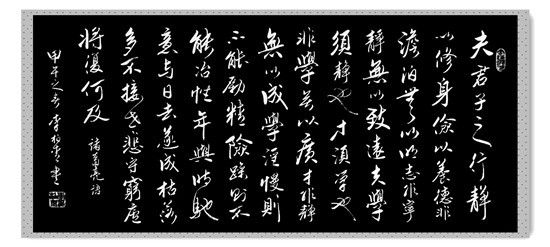 夫君子之行靜
以修身儉以養德非
澹泊無以明志非寧
靜無以致遠夫學
須靜也才須學也
非學無以廣才非靜
無以成學淫慢則
不能勵精險躁則不
能冶性年與時馳
意與日去遂成枯落
多不接世悲守窮廬
將復何及
諸葛亮語
甲午之